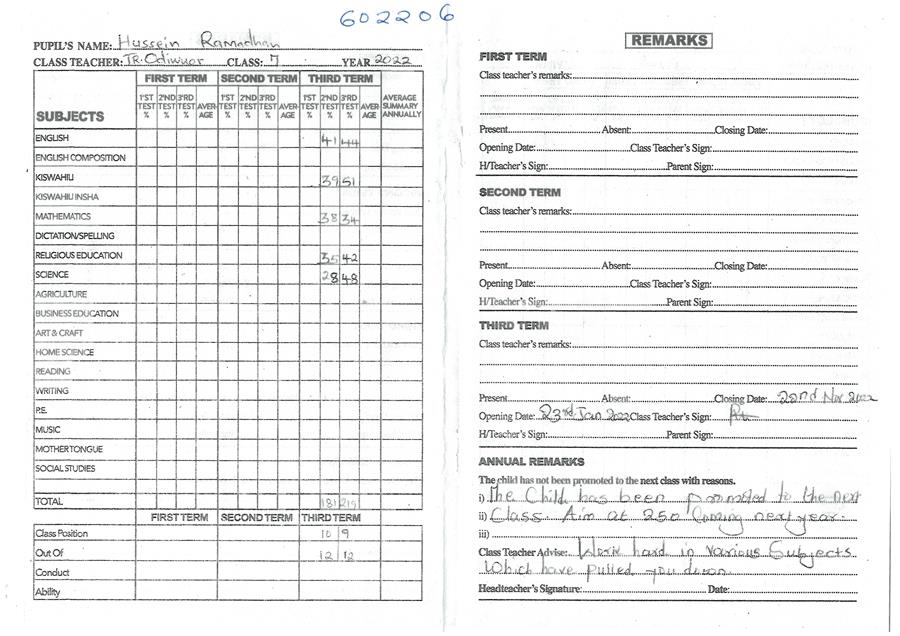 602206
PUPIL'S NAME: Hussein Ramadhan
CLASS TEACHER: TR. Odiwuor CLASS: 7 YEAR 2022
FIRST TERM SECOND TERM THIRD TERM
SUBJECTS 1'ST TEST % 2'ND TEST % 3'RD TEST % AVER-AGE 1'ST TEST % 2'ND TEST % 3'RD TEST % AVER-AGE 1'ST TEST % 2'ND TEST % 3'RD TEST % AVER-AGE AVERAGE SUMMARY ANNUALLY
ENGLISH 41 44
ENGLISH COMPOSITION
KISWAHILI 39 51
KISWAHILI INSHA
MATHEMATICS 38 34
DICTATION/SPELLING
RELIGIOUS EDUCATION 35 42
SCIENCE 28 48
AGRICULTURE
BUSINESS EDUCATION
ART & CRAFT
HOME SCIENCE
READING
WRITING
P.E.
MUSIC
MOTHER TONGUE
SOCIAL STUDIES
TOTAL 181 219
FIRST TERM SECOND TERM THIRD TERM
Class Position 10 9
Out Of 12 12
Conduct
Ability
REMARKS
FIRST TERM
Class teacher's remarks:
Present Absent: Closing Date:
Opening Date: Class Teacher's Sign:
H/Teacher's Sign: Parent Sign:
SECOND TERM
Class teacher's remarks:
Present Absent: Closing Date:
Opening Date: Class Teacher's Sign:
H/Teacher's Sign: Parent Sign:
THIRD TERM
Class teacher's remarks:
Present Absent: Closing Date: 22nd Nov 2022
Opening Date: 23rd Jan 2022 Class Teacher's Sign:
H/Teacher's Sign: Parent Sign:
ANNUAL REMARKS
The child has not been promoted to the next class with reasons.
i) The Child has been promoted to the next
ii) Class Aim at 250 Coming next year.
iii)
Class Teacher Advise: Work hard in Various Subjects
Which have pulled you down
Headteacher's Signature: Date: